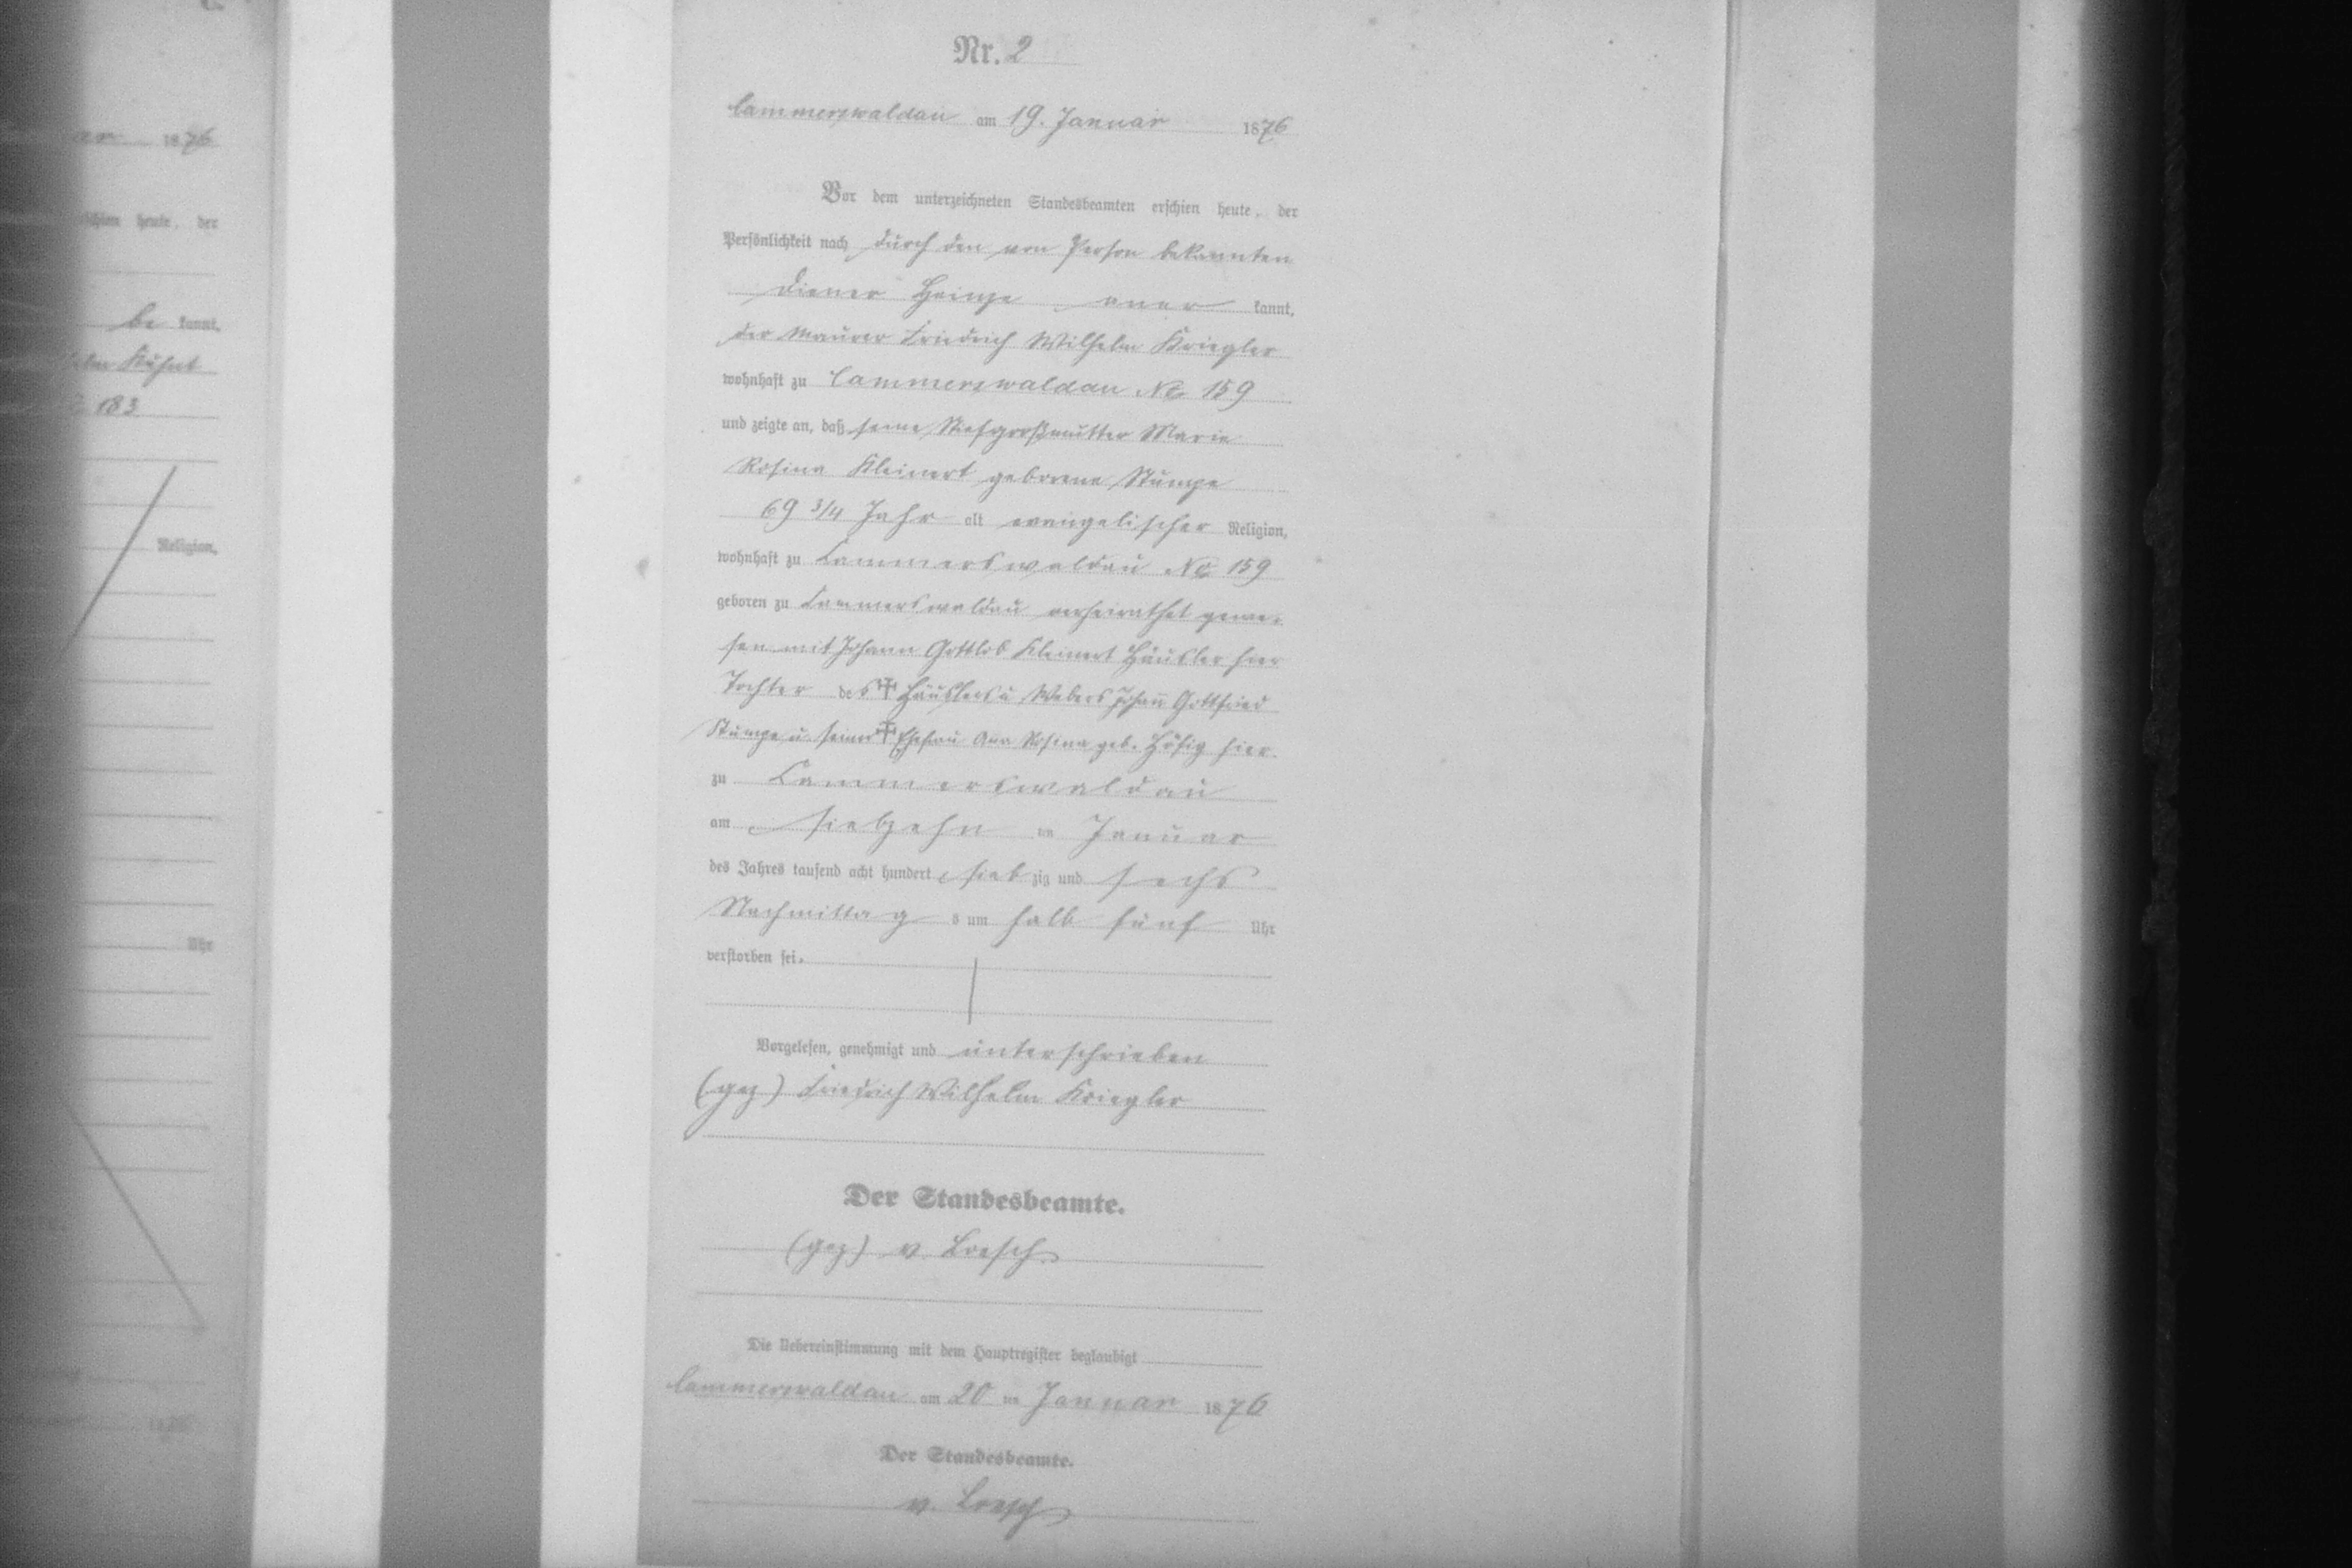 ar 1876
schien heute, der
be kannt,
elm Kuhnt
183
Religion,
Uhr
Nr. 2
Cammerswaldau am 19. Januar 1876
Vor dem unterzeichneten Standesbeamten erschien heute, der
Persönlichkeit nach durch den von Person bekannten
Diener Heinze aner kannt,
der Maurer Friedrich Wilhelm Kriegler
wohnhaft zu Cammerswaldau No 159
und zeigte an, daß seine Stiefgroßmutter Marie
Rosina Kleinert geborene Stumpe
69 3/4 Jahr alt evangelischer Religion,
wohnhaft zu Cammerswaldau No 159
geboren zu Cammerswaldau verheirathet gewe-
sen mit Johann Gottlob Kleinert Häusler hier
Tochter des ✝ Häuslers u Webers Johan̄ Gottfried
Stumpe u. seiner ✝ Ehefrau Ann Rosina geb. Hösig hier.
zu Cammerswaldau
am siebzehn ten Januar
des Jahres tausend acht hundert siebzig und sechs
Nachmittags um halb fünf Uhr
verstorben sei.
Vorgelesen, genehmigt und unterschrieben
(gez) Friedrich Wilhelm Kriegler
Der Standesbeamte.
(gez) v. Loesch
Die Uebereinstimmung mit dem Hauptregister beglaubigt
Cammerswaldau am 20 ten Januar 1876
Der Standesbeamte.
v. Loesch